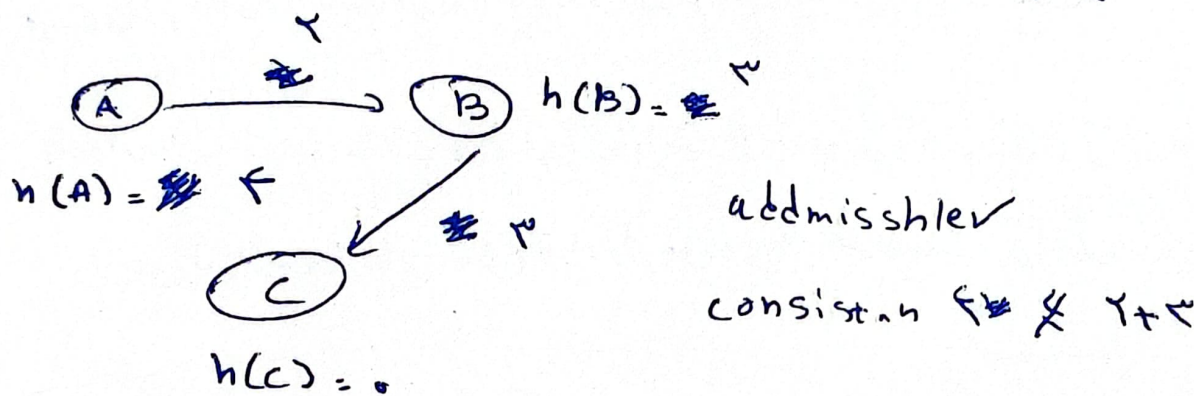 ۲
A B h(B) = ۳
h(A) = ۴
۳
addmisshler
C
consistan ۴ ≰ ۲+۳
h(C) = ۰